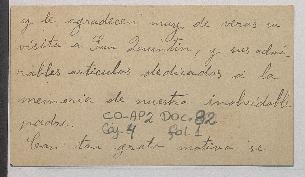 y le agradecen muy de veras su
visita a San Quintín, y sus admi-
rables artículos dedicados a la
memoria de nuestro inolvidable
padre. CO-AP2 DOC.82
Caj. 4 fol. 1
Con tan grato motivo se